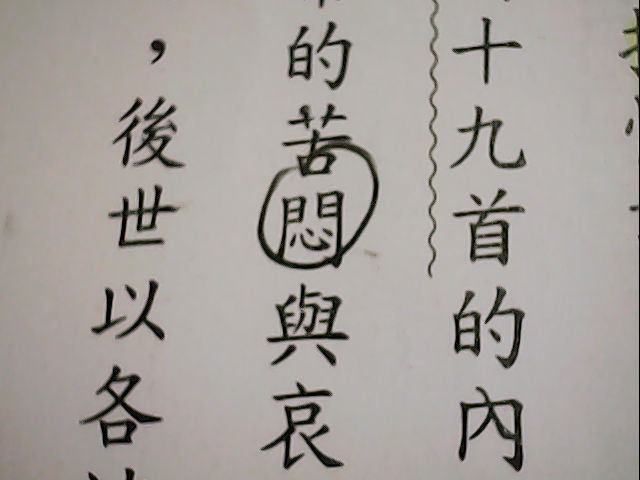 十九首的內
的苦悶與哀
，後世以各